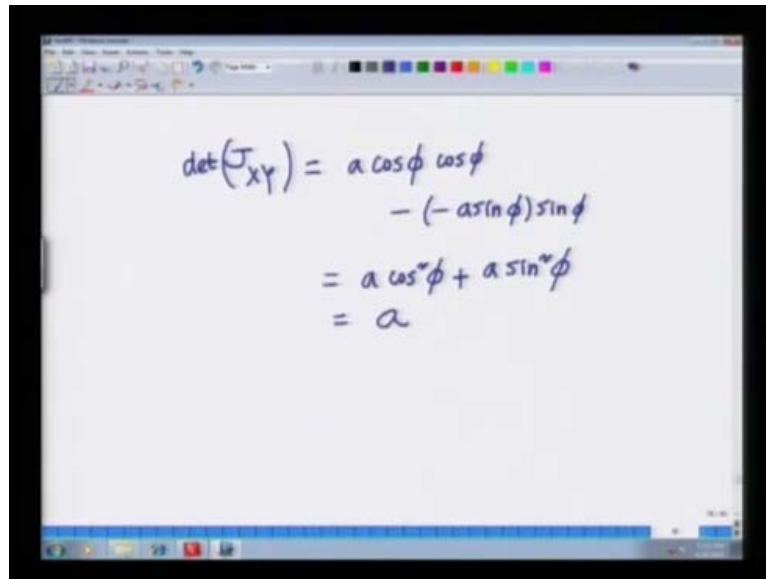 det(J_XY) = a cosϕ cosϕ
- (- a sin ϕ) sin ϕ
= a cos²ϕ + a sin²ϕ
= a